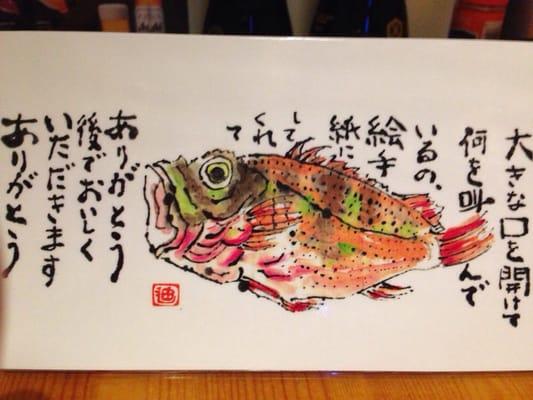 大きな口を開けて
何を叫んで
いるの、
絵手
紙に
して
くれ
て
ありがとう
後でおいしく
いただきます
ありがとう